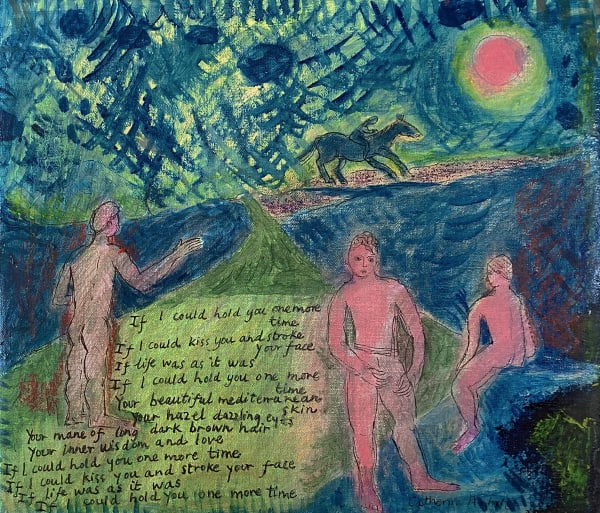 If I could hold you one more
time
If I could kiss you and stroke
your face
If life was as it was
If I could hold you one more
time
Your beautiful mediteranean
skin
Your hazel dazzling eyes
Your mane of long dark brown hair
Your inner wisdom and love
If I could hold you one more time
If I could kiss you and stroke your face
If life was as it was
If I could hold you one more time